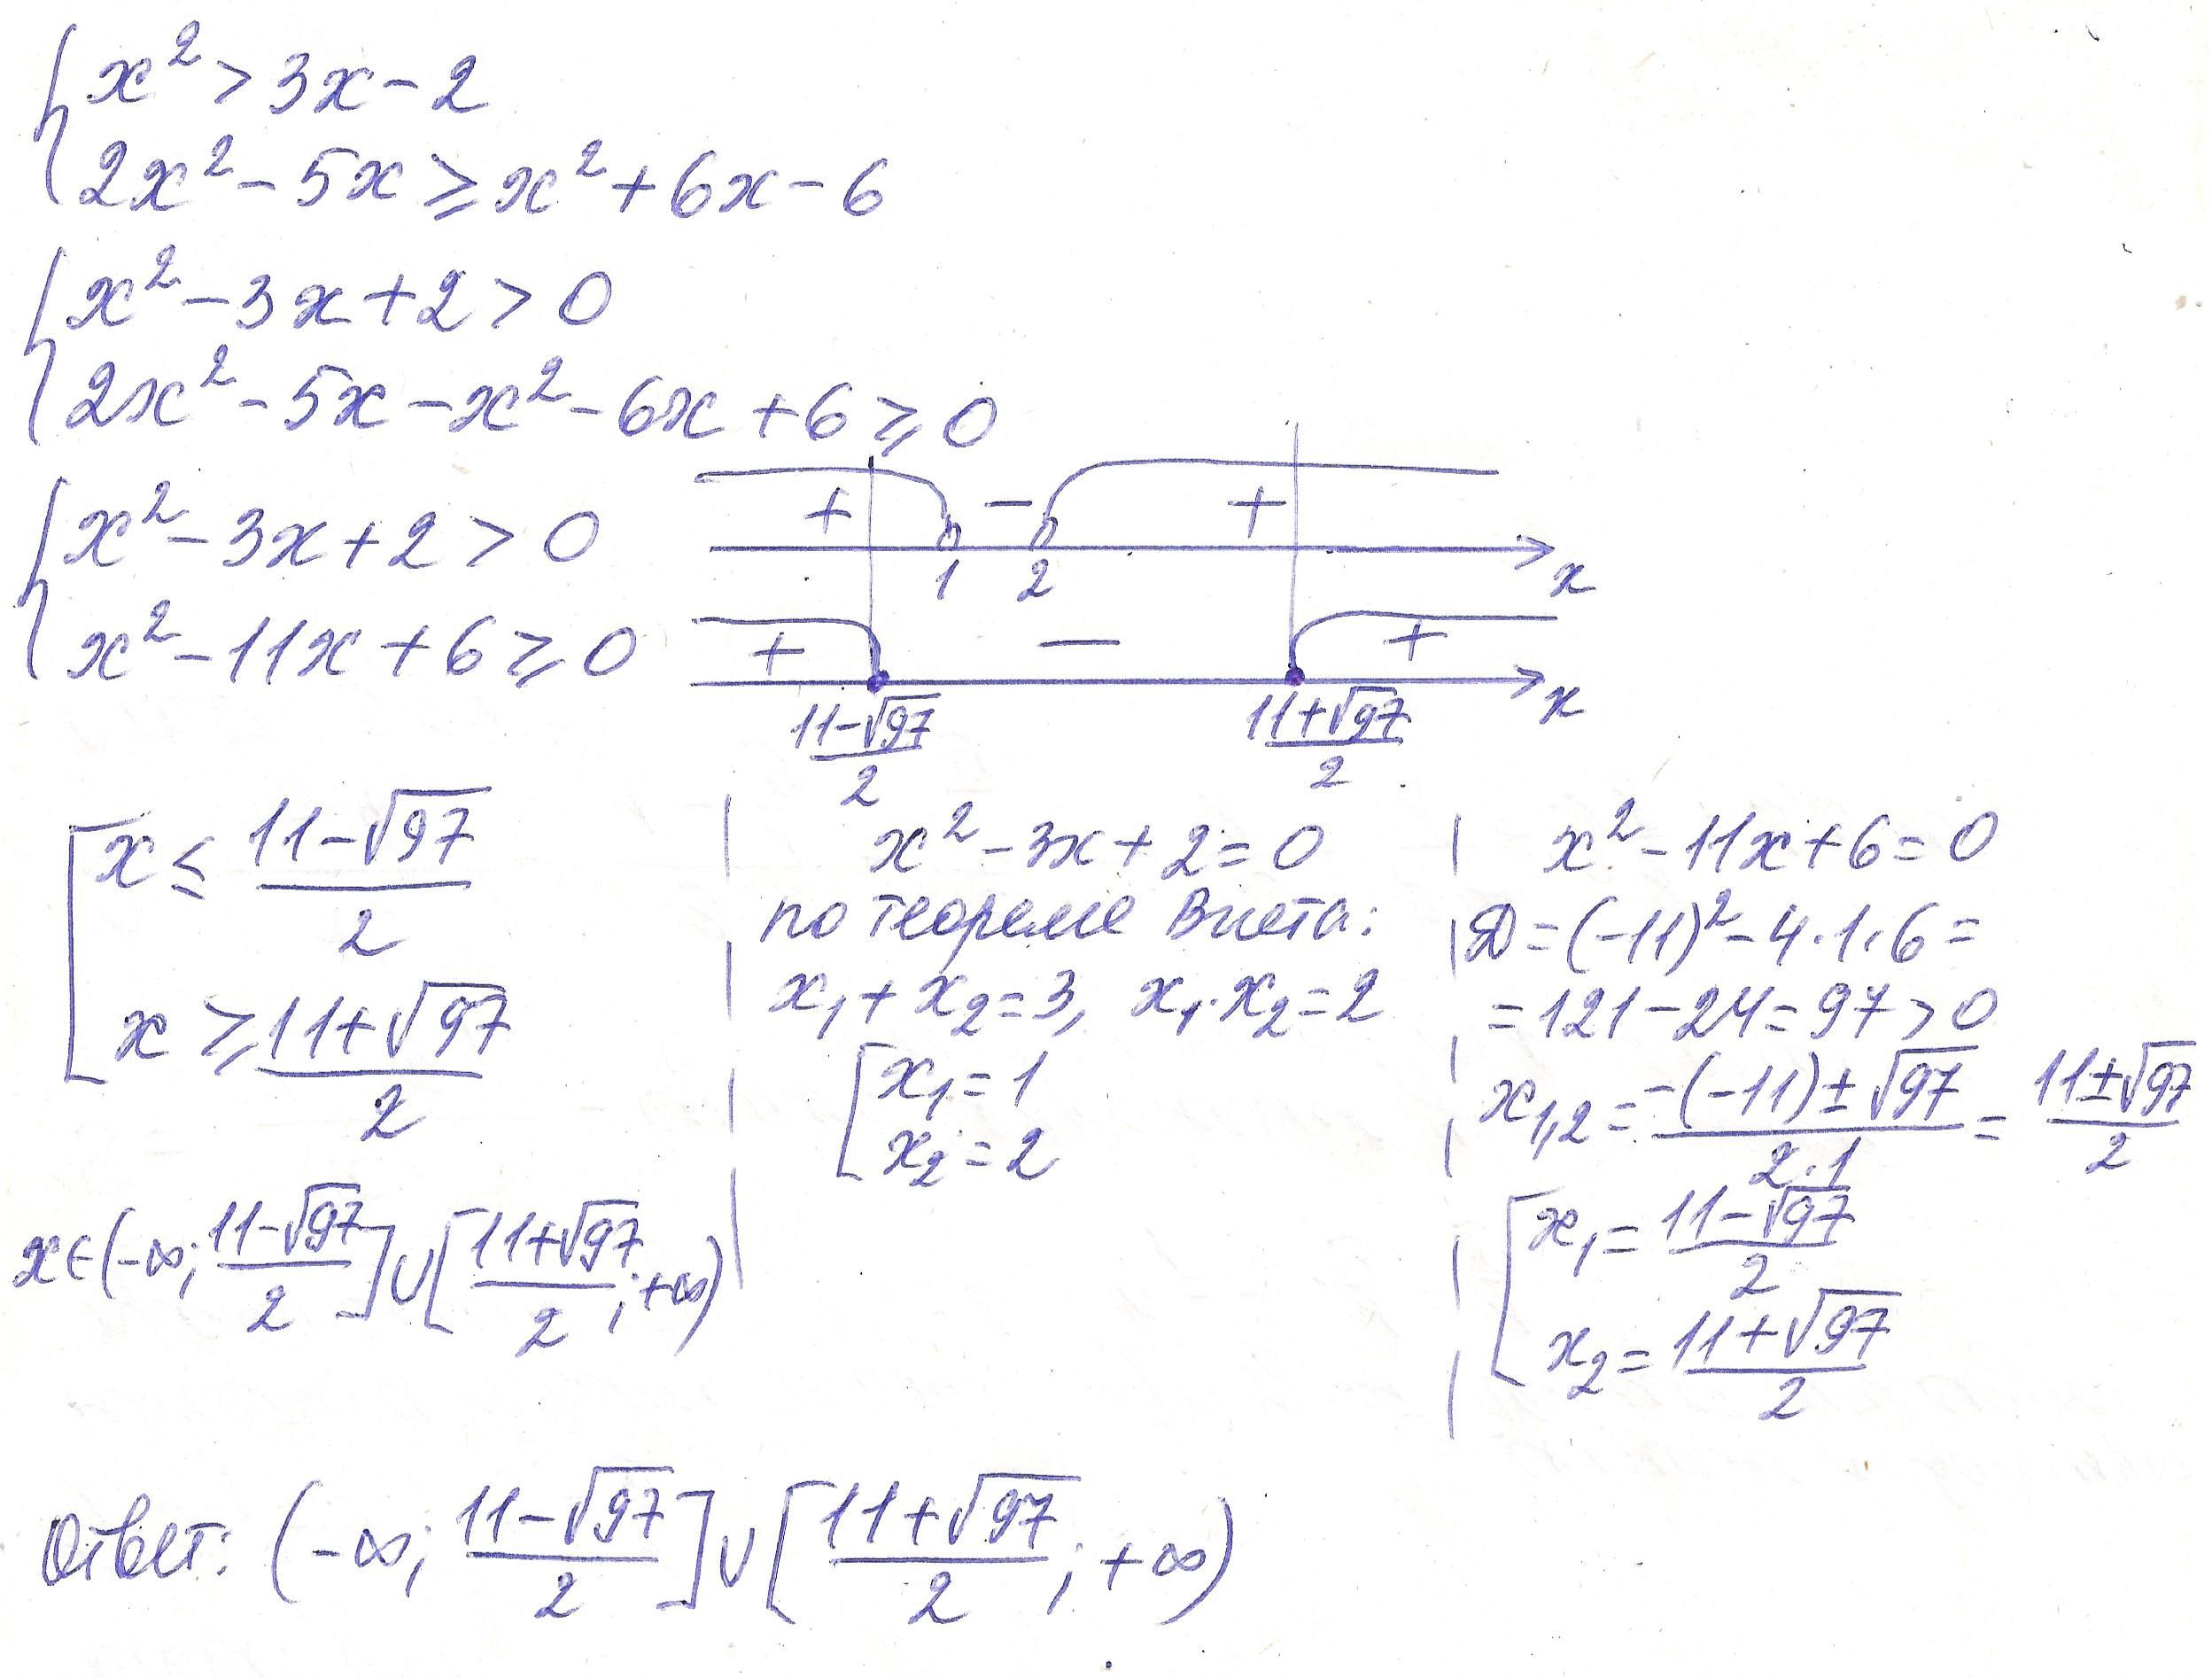 x² > 3x - 2
2x² - 5x ≥ x² + 6x - 6
x² - 3x + 2 > 0
2x² - 5x - x² - 6x + 6 ≥ 0
x² - 3x + 2 > 0
x² - 11x + 6 ≥ 0
+ - +
1 2 x
+ - +
x
(11-√97)/2 (11+√97)/2
x ≤ (11-√97)/2
x ≥ (11+√97)/2
x ∈ (-∞; (11-√97)/2] ∪ [(11+√97)/2; +∞)
x² - 3x + 2 = 0
по теореме Виета:
x₁ + x₂ = 3, x₁ · x₂ = 2
x₁ = 1
x₂ = 2
x² - 11x + 6 = 0
D = (-11)² - 4 · 1 · 6 =
= 121 - 24 = 97 > 0
x₁,₂ = (-(-11) ± √97)/(2·1) = (11±√97)/2
x₁ = (11-√97)/2
x₂ = (11+√97)/2
Ответ: (-∞; (11-√97)/2] ∪ [(11+√97)/2; +∞)